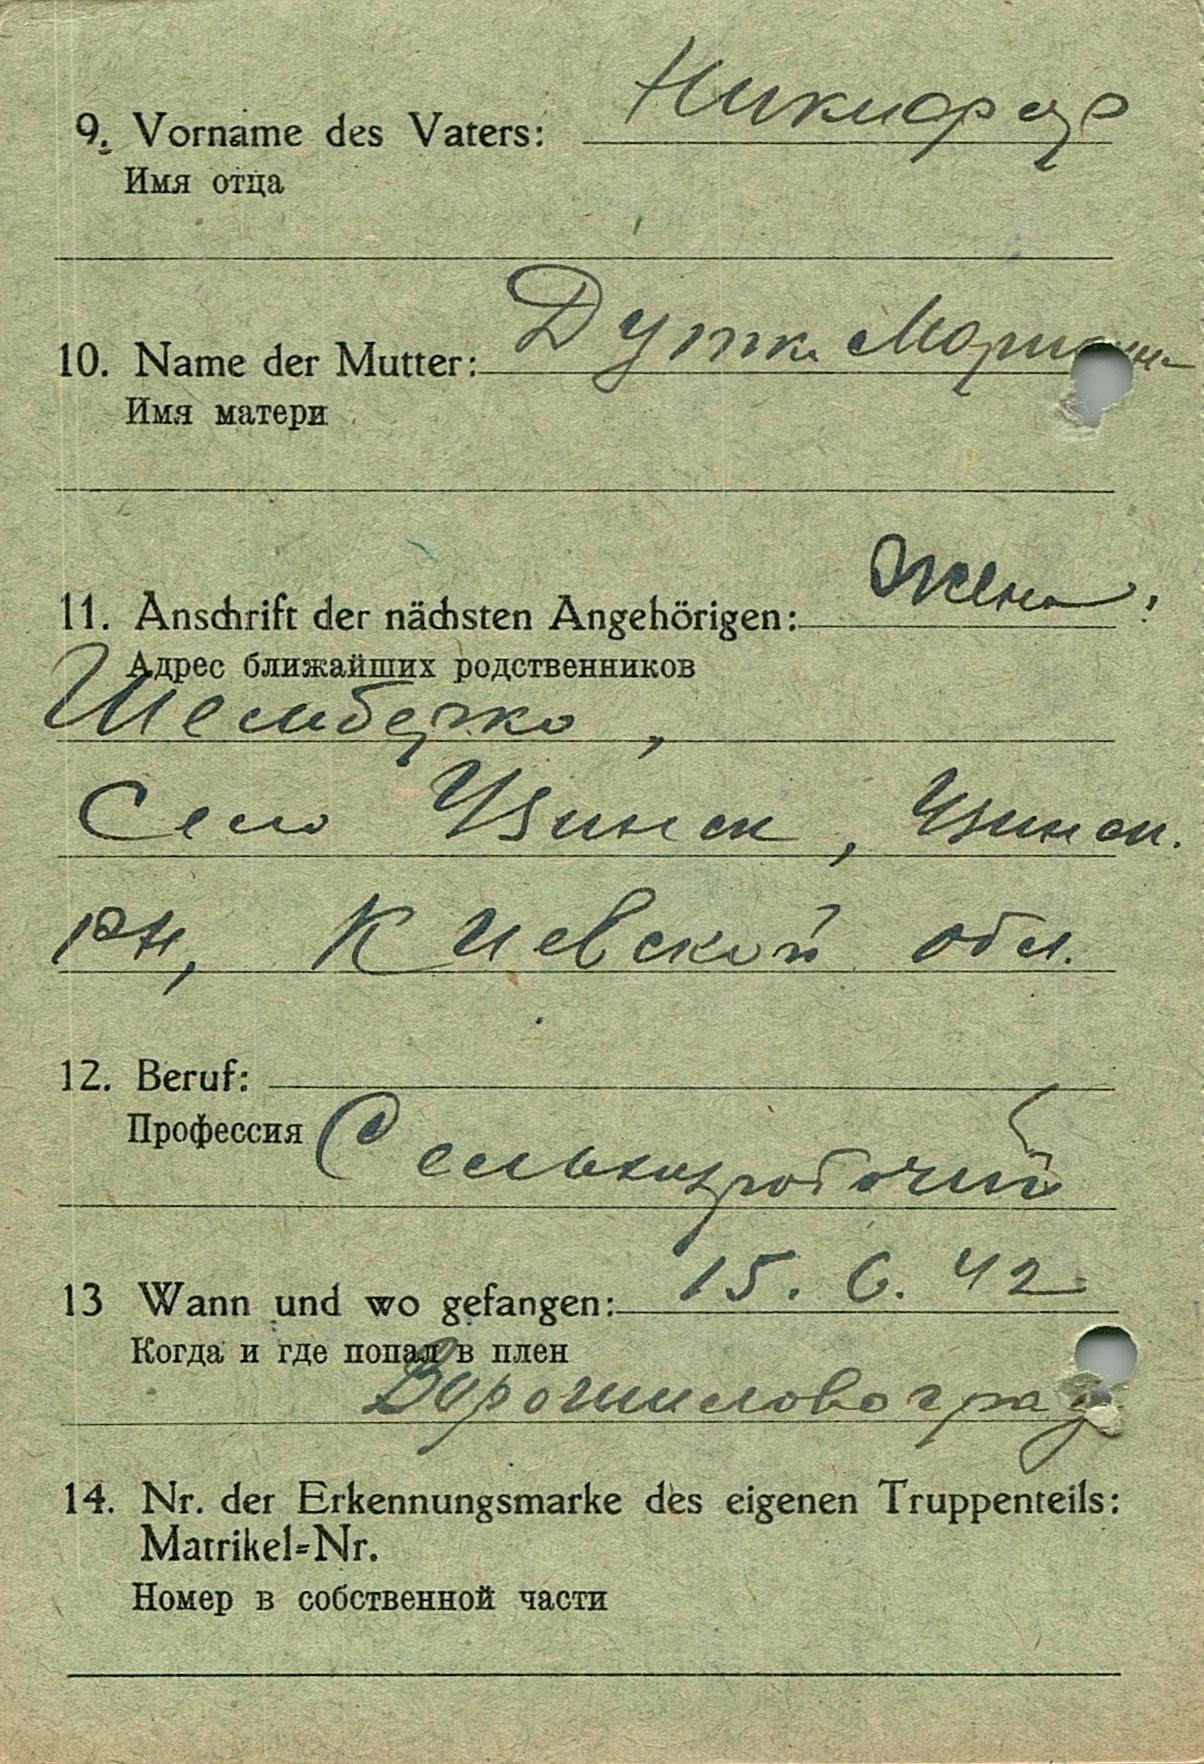 9. Vorname des Vaters: Никифор
Имя отца
10. Name der Mutter: Дутка
Имя матери
11. Anschrift der nächsten Angehörigen: Жена.
Адрес ближайших родственников
Село Узинск, Узинск.
рн, Киевской обл.
12. Beruf:
Профессия Сельхозрабочий
13 Wann und wo gefangen: 15. 6. 42
Когда и где попал в плен
Ворошиловоград
14. Nr. der Erkennungsmarke des eigenen Truppenteils:
Matrikel=Nr.
Номер в собственной части